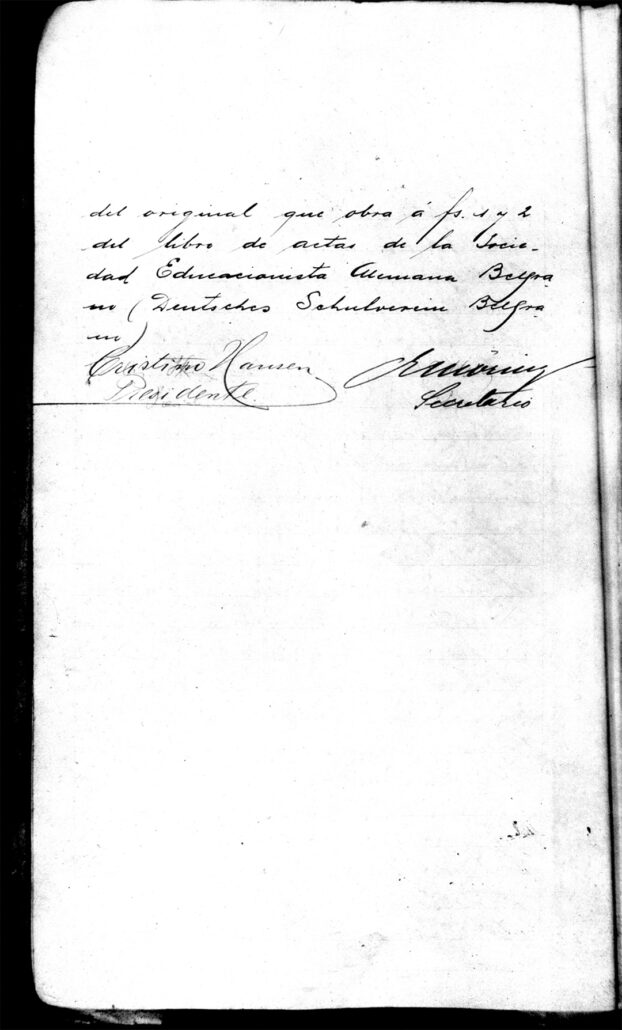 del original que obra á fs. 1 y 2
del libro de actas de la Socie-
dad Educacionista Alemana Belgra-
no (Deutsches Schulverein Belgra-
no)
Cristino Hansen
Presidente.
Secretario